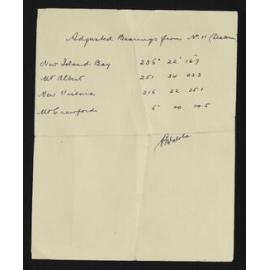 Adjusted Bearings from No. 11 (Beacon
New Island Bay 236° 22' 16.7
Mt Albert 251 34 03.3
New Victoria 316 22 25.1
Mt Crawford 5 20